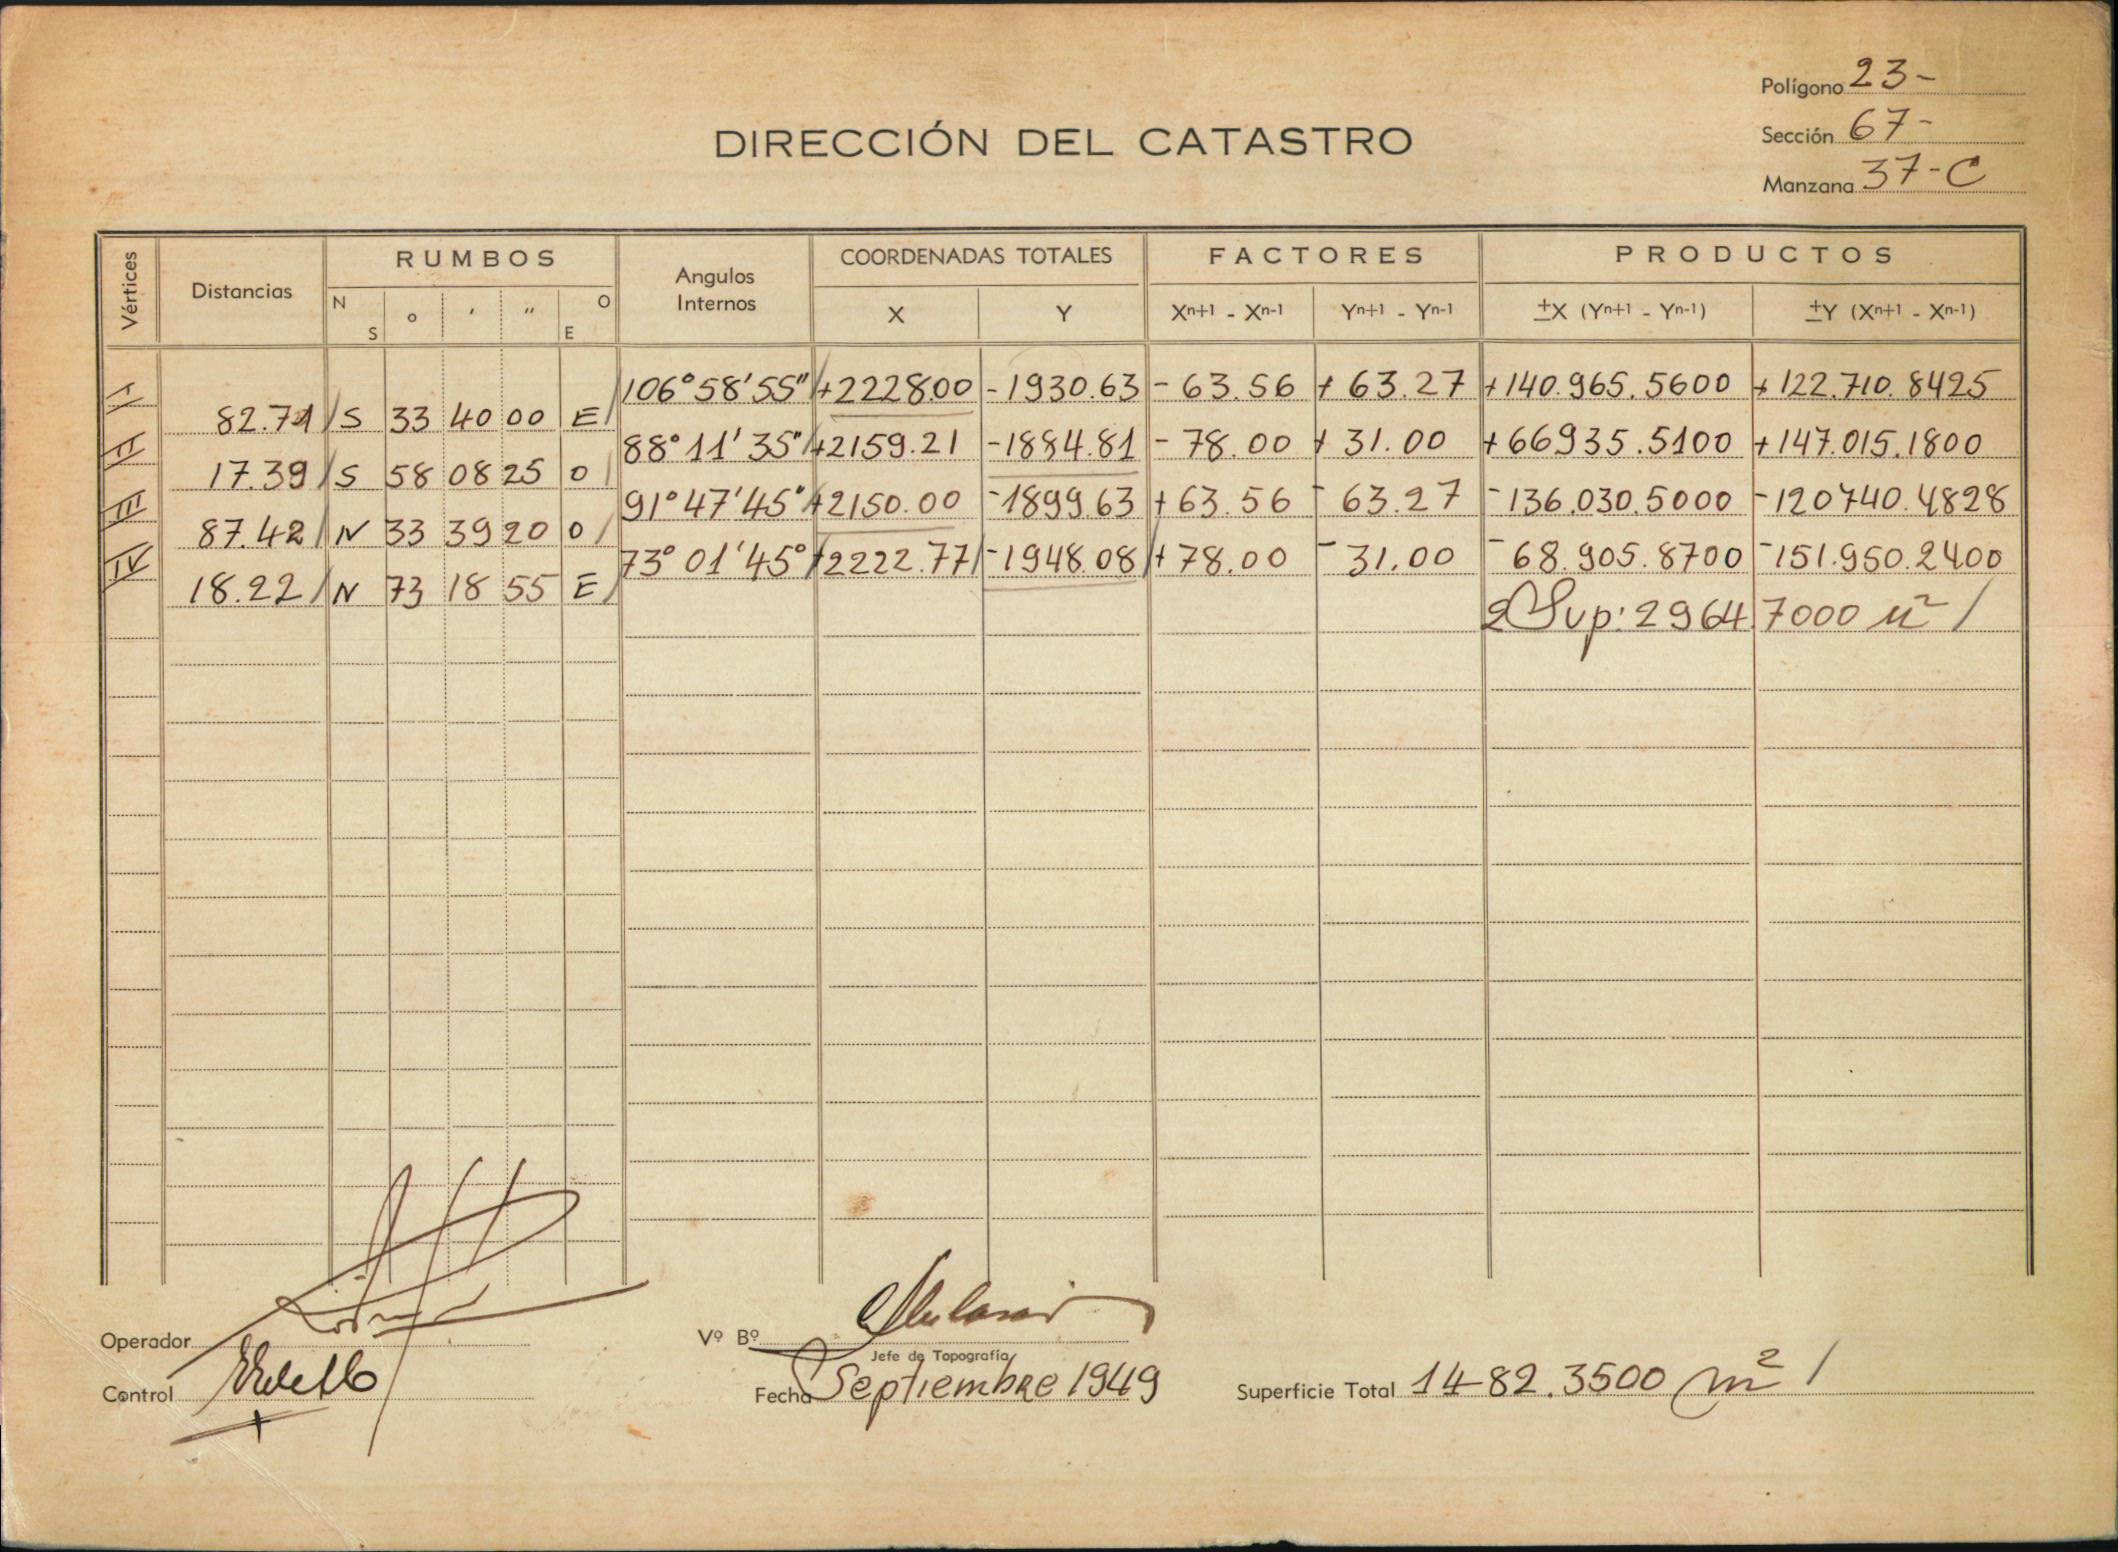 Polígono 23-
Sección 67-
Manzana 37-C
DIRECCIÓN DEL CATASTRO
Vértices Distancias RUMBOS Angulos Internos COORDENADAS TOTALES FACTORES PRODUCTOS
N S o ′ ″ O E X Y Xⁿ⁺¹ - Xⁿ⁻¹ Yⁿ⁺¹ - Yⁿ⁻¹ ±X (Yⁿ⁺¹ - Yⁿ⁻¹) ±Y (Xⁿ⁺¹ - Xⁿ⁻¹)
I 106°58'55" +2228.00 -1930.63 -63.56 +63.27 +140.965.5600 +122.710.8425
82.71 S 33 40 00 E
II 88°11'35" +2159.21 -1884.81 -78.00 +31.00 +66935.5100 +147.015.1800
17.39 S 58 08 25 O
III 91°47'45" +2150.00 -1899.63 +63.56 -63.27 -136.030.5000 -120740.4828
87.42 N 33 39 20 O
IV 73°01'45" +2222.77 -1948.08 +78.00 -31.00 -68.905.8700 -151.950.2400
18.22 N 73 18 55 E
2 Sup: 2964.7000 m²
Operador
Vº Bº
Jefe de Topografía
Control
Fecha Septiembre 1949
Superficie Total 1482.3500 m²